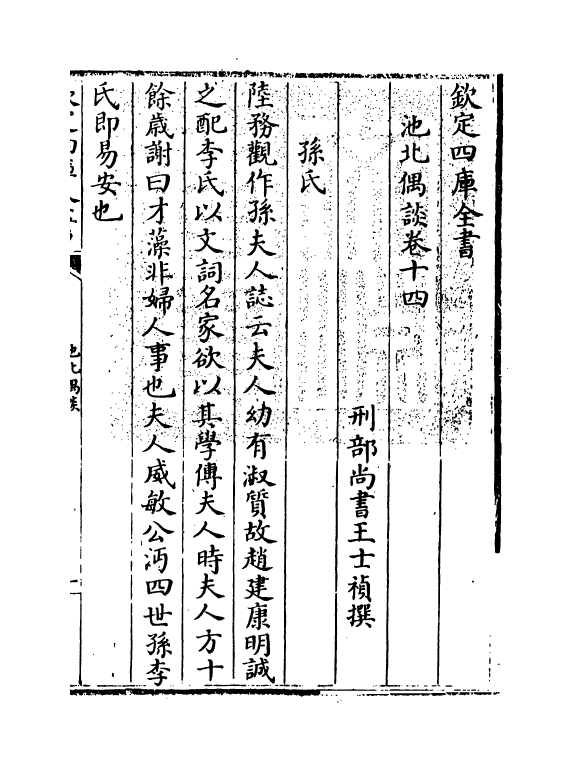 欽定四庫全書
池北偶談卷十四
刑部尚書王士禎撰
孫氏
陸務觀作孫夫人誌云夫人幼有淑質故趙建康明誠
之配李氏以文詞名家欲以其學傳夫人時夫人方十
餘歳謝曰才藻非婦人事也夫人威敏公沔四世孫李
氏即易安也